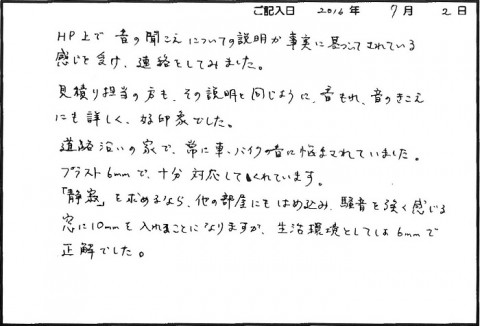 ご記入日 2016年 7月 2日
HP上で音の聞こえについての説明が事実に基づいてされている
感じを受け、連絡をしてみました。
見積り担当の方も、その説明と同じように、音もれ、音のきこえ
にも詳しく、好印象でした。
道路沿いの家で、常に車、バイクの音に悩まされていました。
プラスト6mmで、十分対応してくれています。
「静寂」を求めるなら、他の部屋にもはめ込み、騒音を強く感じる
窓に10mmを入れることになりますが、生活環境としては6mmで
正解でした。